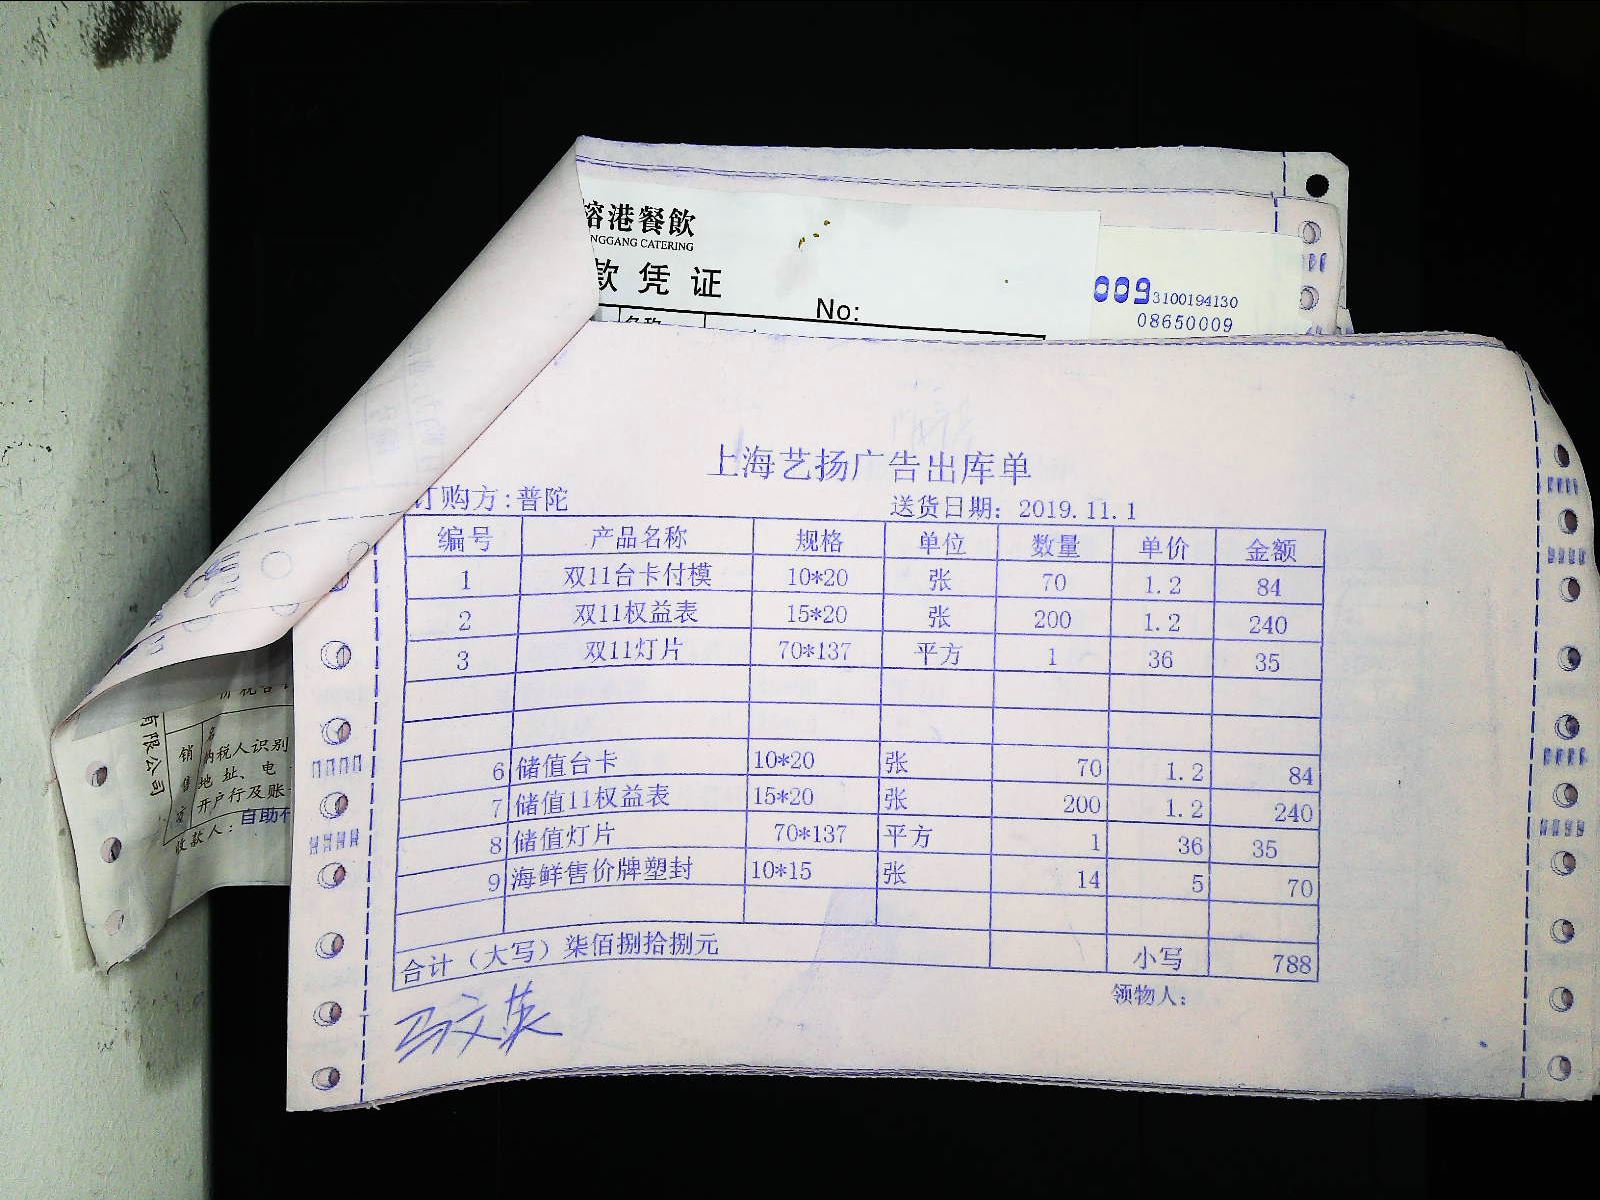 港餐飲
NGGANG CATERING
款凭证
No:
009 3100194130
08650009
上海艺扬广告出库单
订购方:普陀 送货日期: 2019.11.1
编号 产品名称 规格 单位 数量 单价 金额
1 双11台卡付模 10*20 张 70 1.2 84
2 双11权益表 15*20 张 200 1.2 240
3 双11灯片 70*137 平方 1 36 35
6 储值台卡 10*20 张 70 1.2 84
7 储值11权益表 15*20 张 200 1.2 240
8 储值灯片 70*137 平方 1 36 35
9 海鲜售价牌塑封 10*15 张 14 5 70
合计（大写）柒佰捌拾捌元 小写 788
领物人:
马文英
有限公司
销售方
纳税人识别
地址、电
开户行及账
收款人: 自助